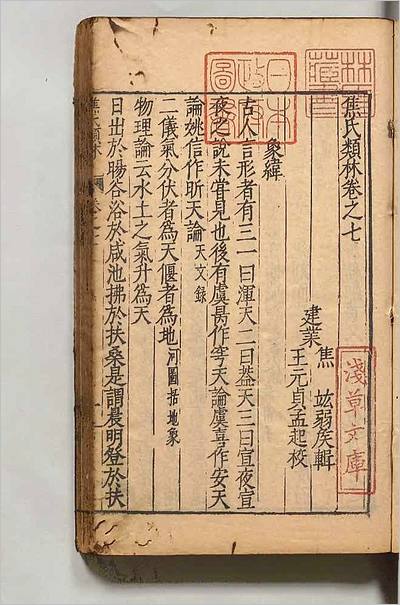 焦氏類林卷之七
建業 焦竑弱侯輯
王元貞孟起校
象緯
古人言形者有三一曰渾天二曰葢天三曰宣夜宣
夜之說未甞見也後有虞昺作穹天論虞喜作安天
論姚信作昕天論天文錄
二儀氣分伏者為天偃者為地河圖括地象
物理論云水土之氣升為天
日出於暘谷浴於咸池拂於扶桑是謂晨明登於扶
淺草文庫
林氏藏書
日本政府圖書